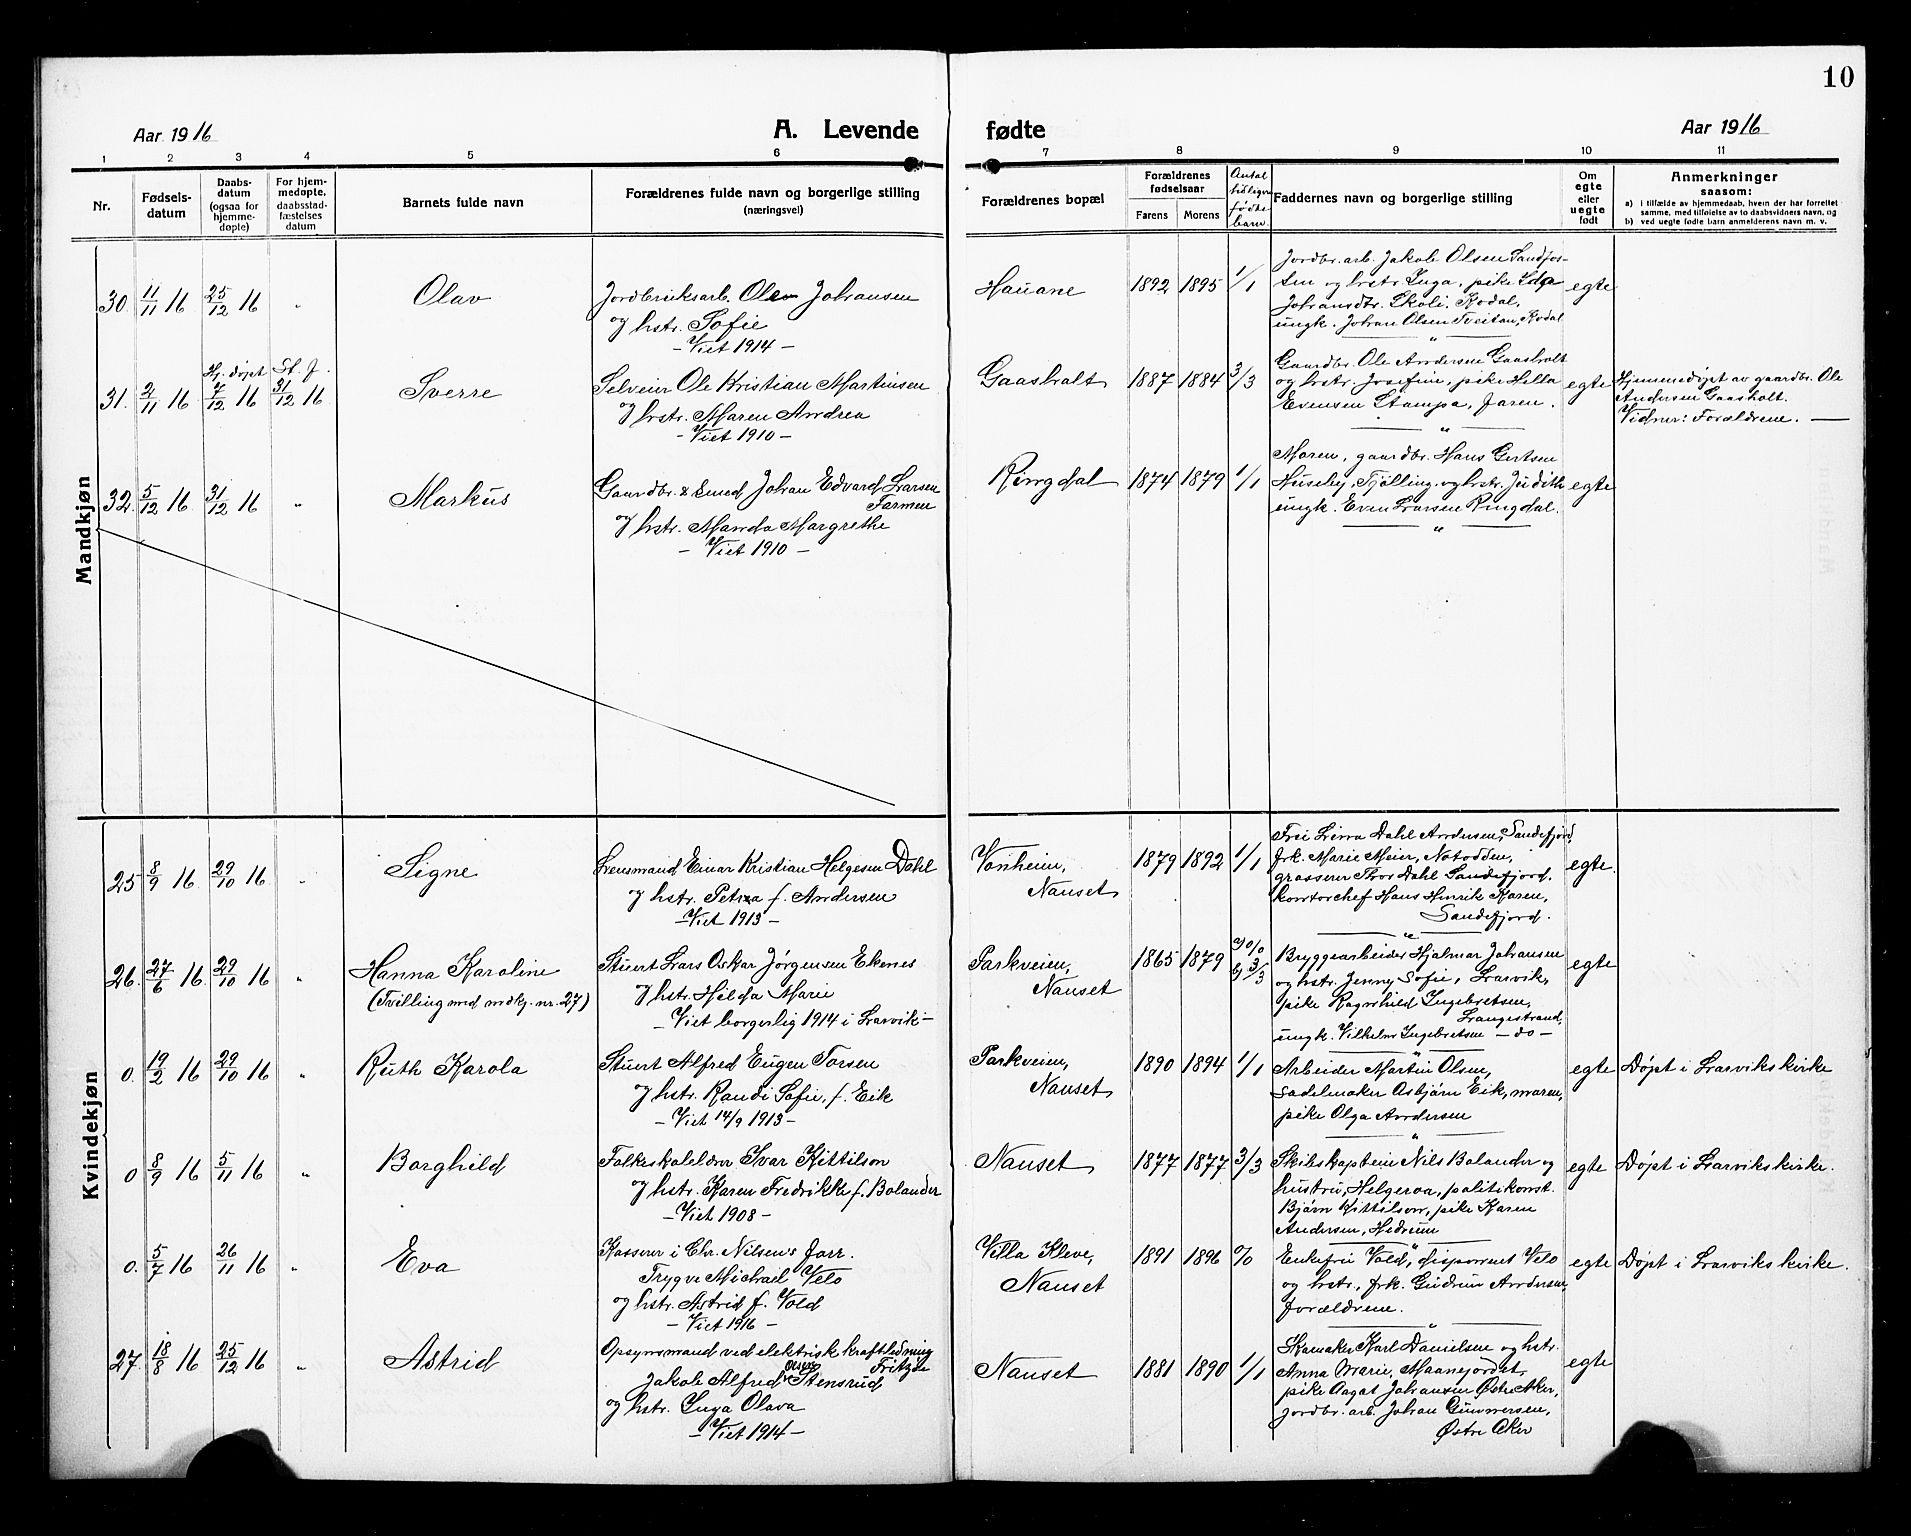 10
Aar 1916
A. Levende fødte
Aar 1916
1 2 3 4 5 6 7 8 9 10 11
Nr.
Fødsels-
datum
Daabs-
datum
(ogsaa for
hjemme-
døpte)
For hjem-
medøpte,
daabsstad-
fæstelses
datum
Barnets fulde navn
Forældrenes fulde navn og borgerlige stilling
(næringsvei)
Forældrenes bopæl
Forældrenes
fødselsaar
Farens Morens
Antal
tidligere
fødte
barn.
Faddernes navn og borgerlige stilling
Om
egte
eller
uegte
født
Anmerkninger
saasom:
a) i tilfælde av hjemmedaab, hvem der har forrettet
samme, med tilføielse av to daabsvidners navn, og
b) ved uegte fødte barn anmelderens navn m. v.
Mandkjøn
30. 11/11 16 25/12 16 " Olav
Jordbruksarb. Olav Johansen
og hstr. Sofie
- Viet 1914 -
Hauane 1892 1895 1/1
Jordbr. arb. Jakob Olsen
og hstr. Inga, pike
Johansdtr. Skoli, Kodal,
ungk. Johan Olsen Tveitan, Kodal
egte
31. 2/11 16 Hj. døpt 7/12 16 St. f. 31/12 16 Sverre
Selveier Ole Kristian Martinsen
og hstr. Maren Andrea
- Viet 1910 -
Gaasholt 1887 1884 3/3
Gaardbr. Ole Andersen Gaasholt
og hstr. Josefine, pike Hilla
Evensen Stampa, Jaren.
egte
Hjemmedøpt av gaardbr. Ole
Andersen Gaasholt.
Vidner: Forældrene. —
32. 5/12 16 31/12 16 " Markus
Gaardbr. & smed Johan Edvard Larsen
Farmen
og hstr. Manda Margrethe
- Viet 1910 -
Ringdal 1874 1879 1/1
Moren, gaardbr. Hans Gertsen
Huseby, Tjølling og hstr. Judith
ungk. Even Larsen Ringdal.
egte
Kvindekjøn
25 8/9 16 29/10 16 " Signe
Lensmand Einar Kristian Helgesen Dahl
og hstr. Petra f. Andersen
- Viet 1913 -
Vonheim,
Nanset
1879 1892 1/1
Fru Dahl Andersen, Sandefjord,
frk. Marie Meier, Notodden,
grosserer Thor Dahl Sandefjord,
kontorchef Hans Henrik Karen,
Sandefjord.
egte
26. 27/6 16 29/10 16 " Hanna Karoline
(Tvilling med mdkj. nr. 27)
Stuert Lars Oskar Jørgensen Ekenes
og hstr. Hilda Marie
- Viet borgerlig 1914 i Larvik -
Parkveien,
Nanset
1865 1879 3/3
Bryggearbeider Hjalmar Johansen
og hstr. Jenny Sofie, Larvik,
pike Ragnhild Ingebretsen,
Langestrand,
ungk. Vilhelm Ingebretsen - do -
egte
0. 19/2 16 29/10 16 " Ruth Karola
Stuert Alfred Eugen Torsen
og hstr. Randi Sofie, f. Eik
- Viet 14/9 1913 -
Parkveien,
Nanset
1890 1894 1/1
Arbeider Martin Olsen,
sadelmaker Asbjørn Eik, moren,
pike Olga Andersen
egte
Døpt i Larviks kirke
0 8/9 16 5/11 16 " Borghild
Folkeskolelærer Ivar Kittilson
og hstr. Karen Fredrikke f. Bolander
- Viet 1908 -
Nanset 1877 1877 3/3
Skibskaptein Nils Bolander og
hustru, Helgeroa, politikonst.
Bjørn Kittilson, pike Karen
Andersen, Hedrum
egte
Døpt i Larviks kirke.
0. 5/7 16 26/11 16 " Eva
Kasserer i Chr. Nielsen's forr.
Trygve Michael Velo
og hstr. Astrid f. Vold
- Viet 1916 -
Villa Kleve,
Nanset
1891 1896 0/0
Enkefru Vold, disponent Velo
og hstr., frk. Gudrun Andersen,
forældrene.
egte
Døpt i Larviks kirke.
27. 18/8 16 25/12 16 " Astrid
Opsynsmand ved elektrisk kraftledning
Fritzøe
Jakob Alfred Olsen Stensrud
og hstr. Inga Olava
- Viet 1914 -
Nanset 1881 1890 1/1
Skomaker Karl Danielsen og hstr.
Anna Marie, Maanejordet,
pike Aagot Johansen Østre Aker,
jordbr. arb. Johan Gunnersen,
Østre Aker
egte